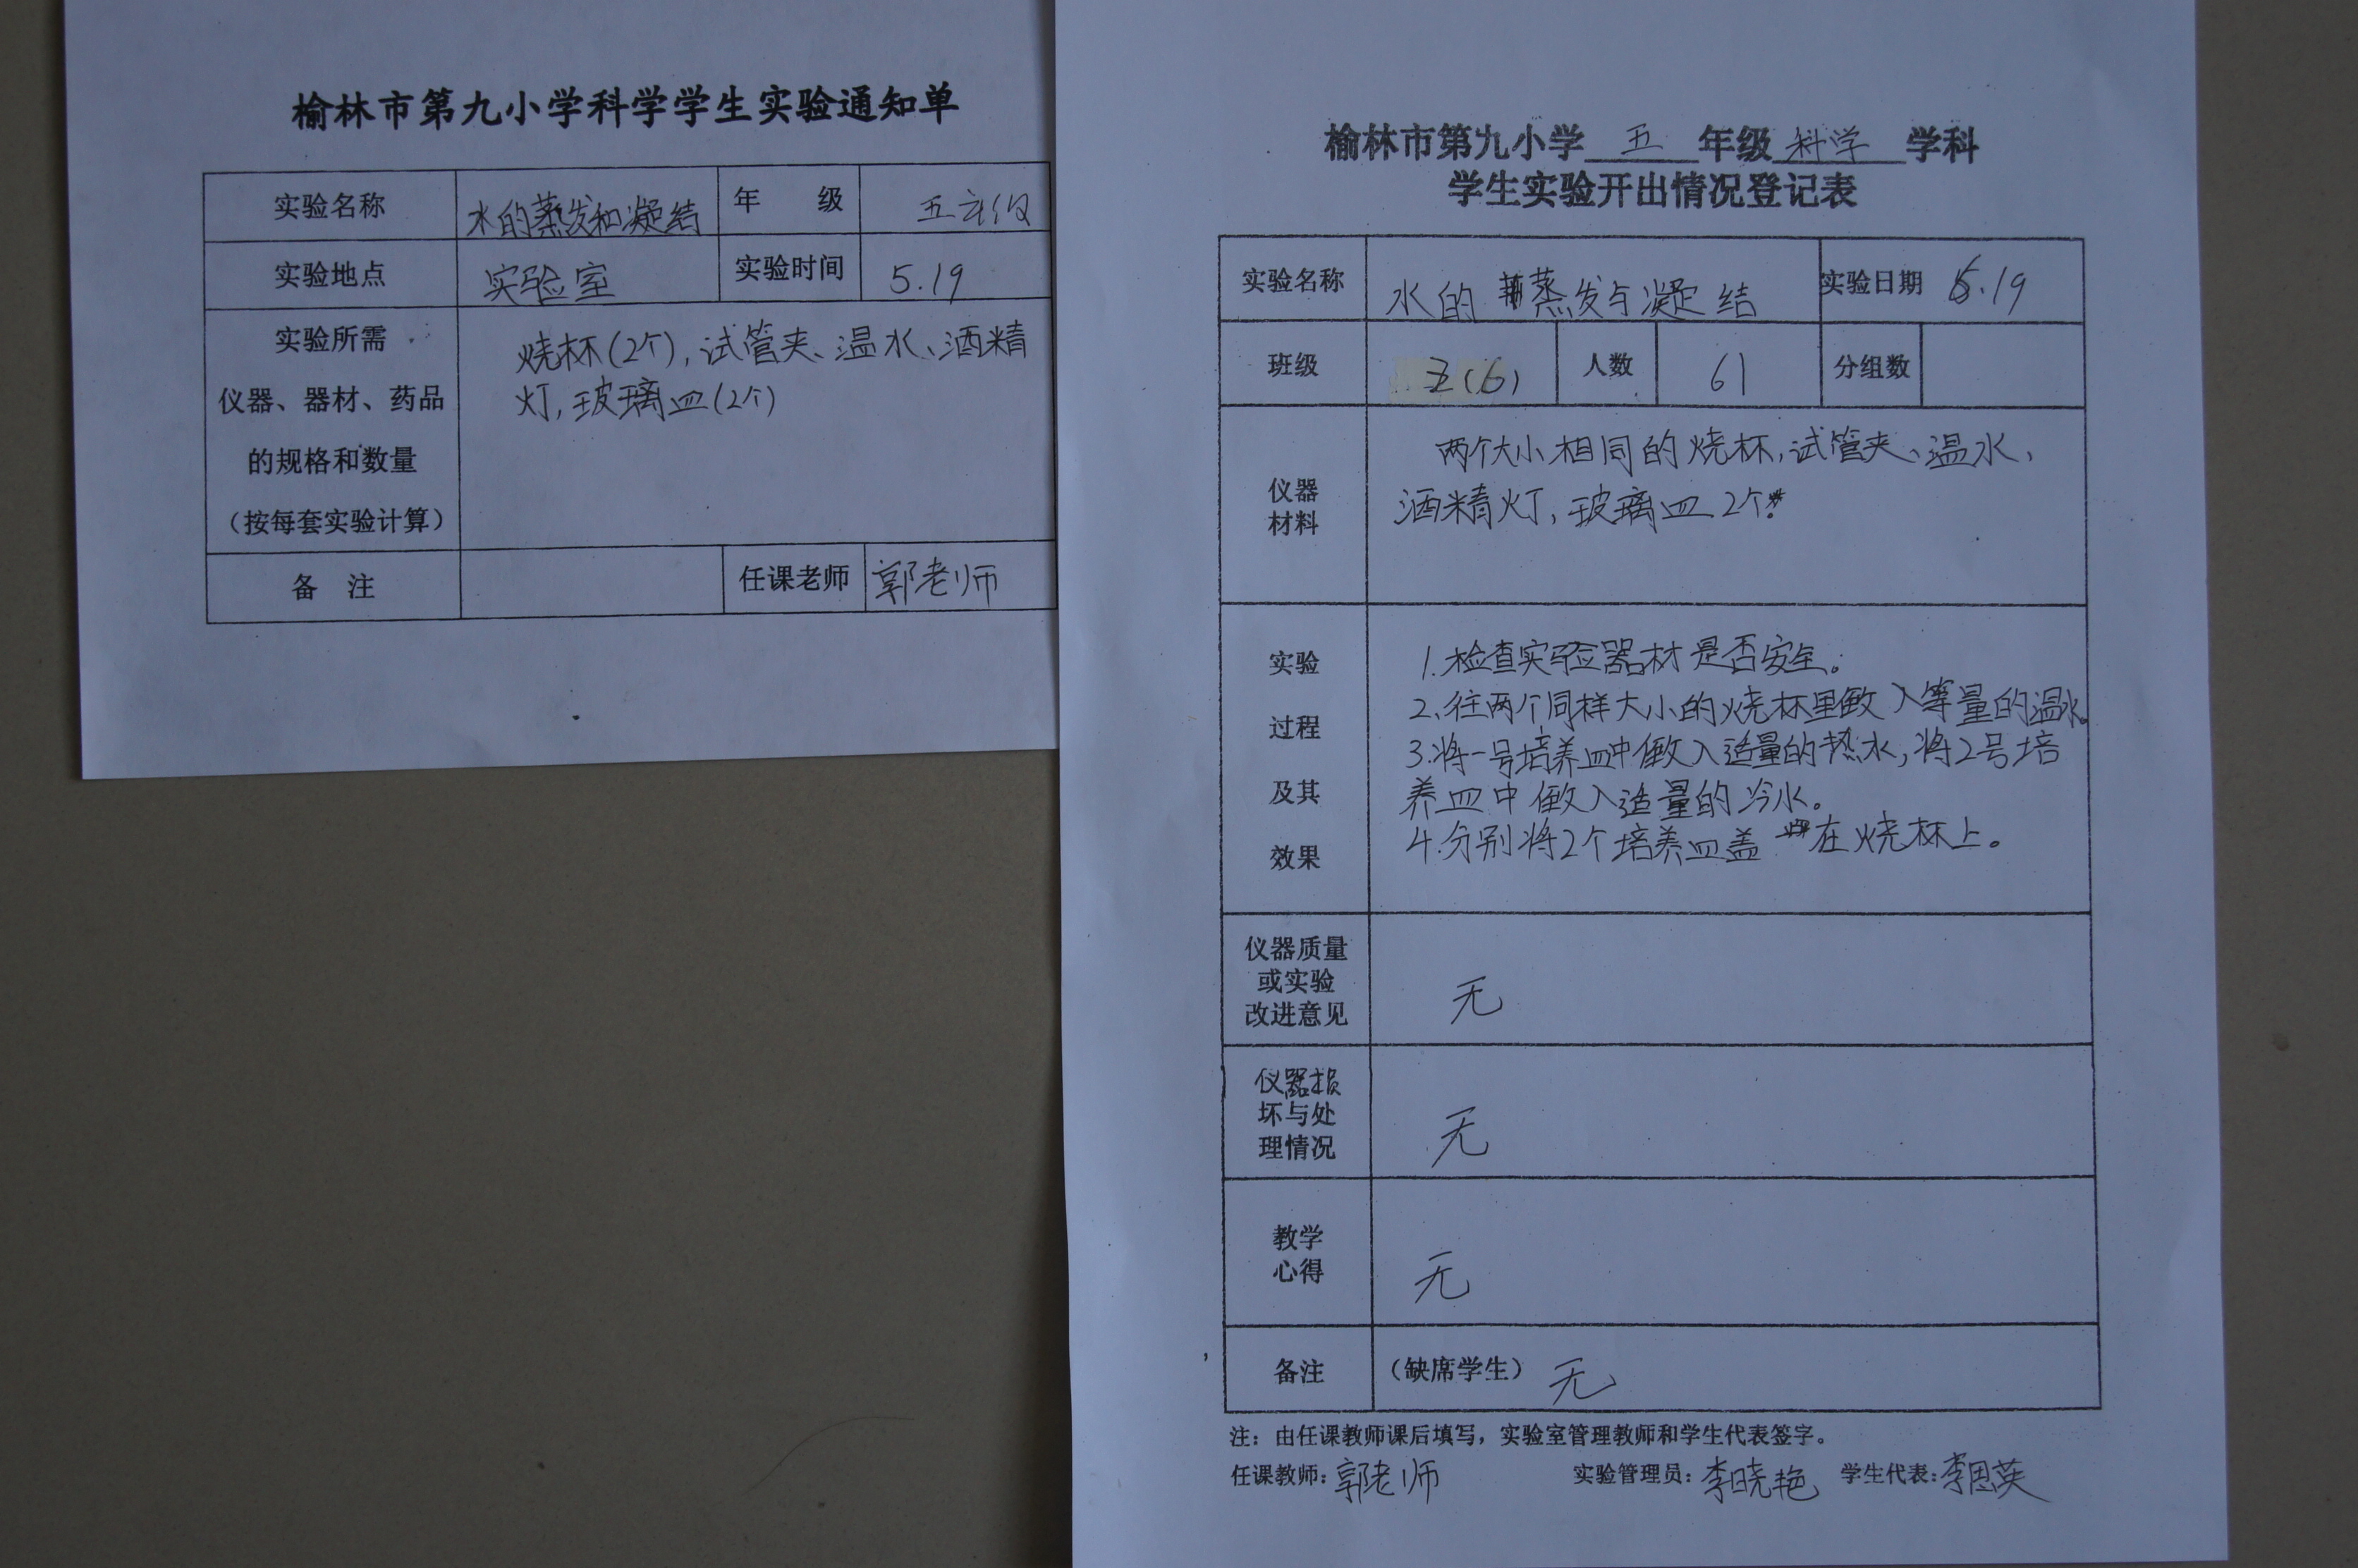 榆林市第九小学科学学生实验通知单
实验名称 水的蒸发和凝结 年 级 五年级
实验地点 实验室 实验时间 5.19
实验所需
仪器、器材、药品
的规格和数量
（按每套实验计算）
烧杯(2个),试管夹、温水、酒精
灯,玻璃皿(2个)
备 注 任课老师 郭老师
榆林市第九小学 五 年级 科学 学科
学生实验开出情况登记表
实验名称 水的蒸发与凝结 实验日期 5.19
班级 五(6) 人数 61 分组数
仪器
材料
两个大小相同的烧杯,试管夹、温水、
酒精灯,玻璃皿2个.
实验
过程
及其
效果
1.检查实验器材是否安全。
2、往两个同样大小的烧杯里 入等量的温水。
3.将一号培养皿中 入适量的热水,将2号培
养皿中 入适量的冷水。
4.分别将2个培养皿盖在烧杯上。
仪器质量
或实验
改进意见
无
仪器损
坏与处
理情况
无
教学
心得
无
备注 （缺席学生） 无
注：由任课教师课后填写，实验室管理教师和学生代表签字。
任课教师：郭老师 实验管理员：李晓艳 学生代表：李思英